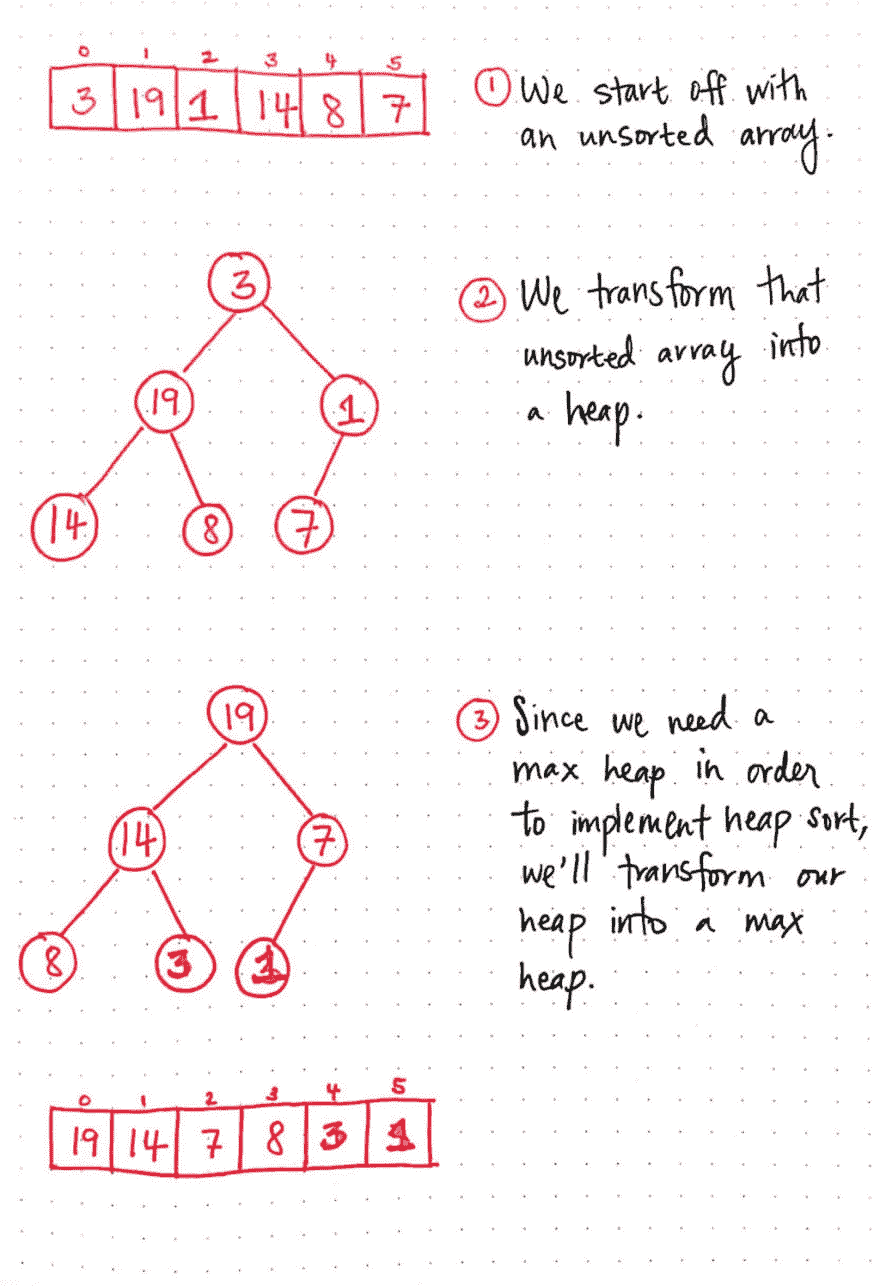 0 1 2 3 4 5
3 19 1 14 8 7
① We start off with
an unsorted array.
3
19 1
14 8 7
② We transform that
unsorted array into
a heap.
19
14 7
8 3 1
③ Since we need a
max heap in order
to implement heap sort,
we'll transform our
heap into a max
heap.
0 1 2 3 4 5
19 14 7 8 3 1